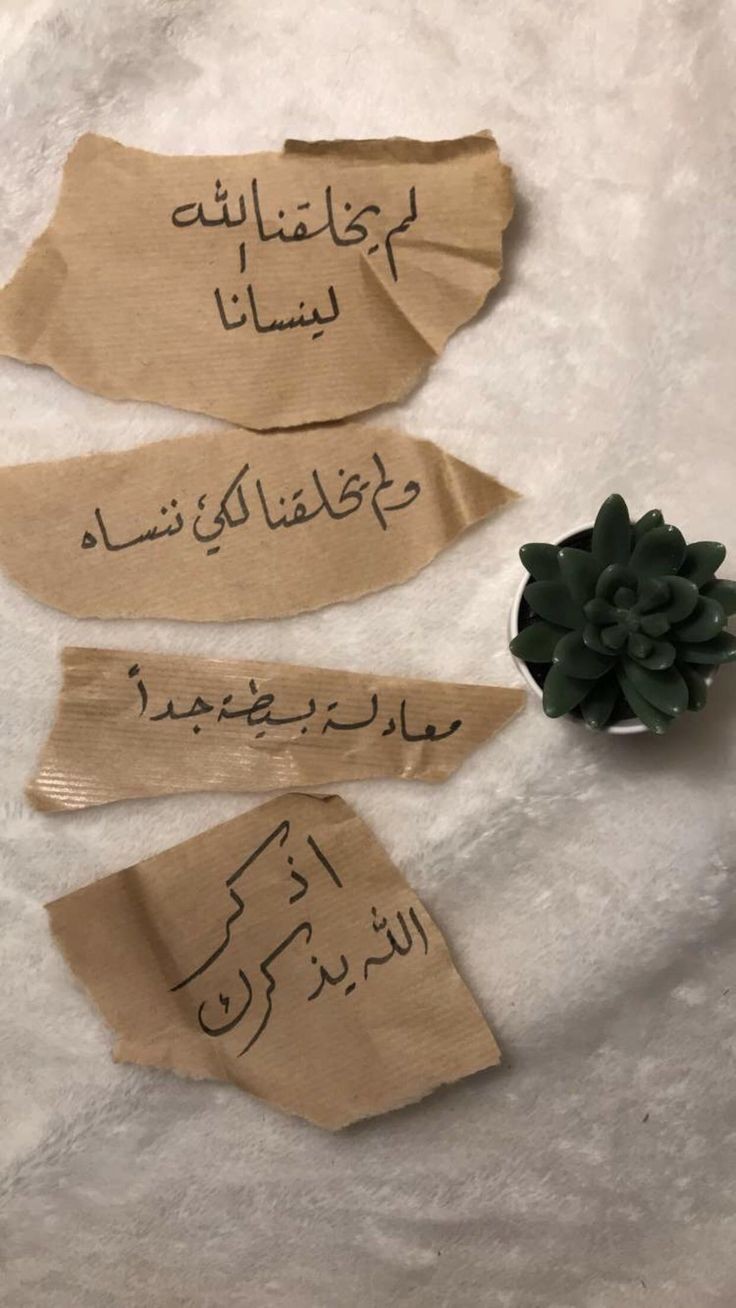 لم يخلقنا الله
لينسانا
ولم يخلقنا لكي ننساه
معادلة بسيطة جداً
اذكر
الله يذكرك